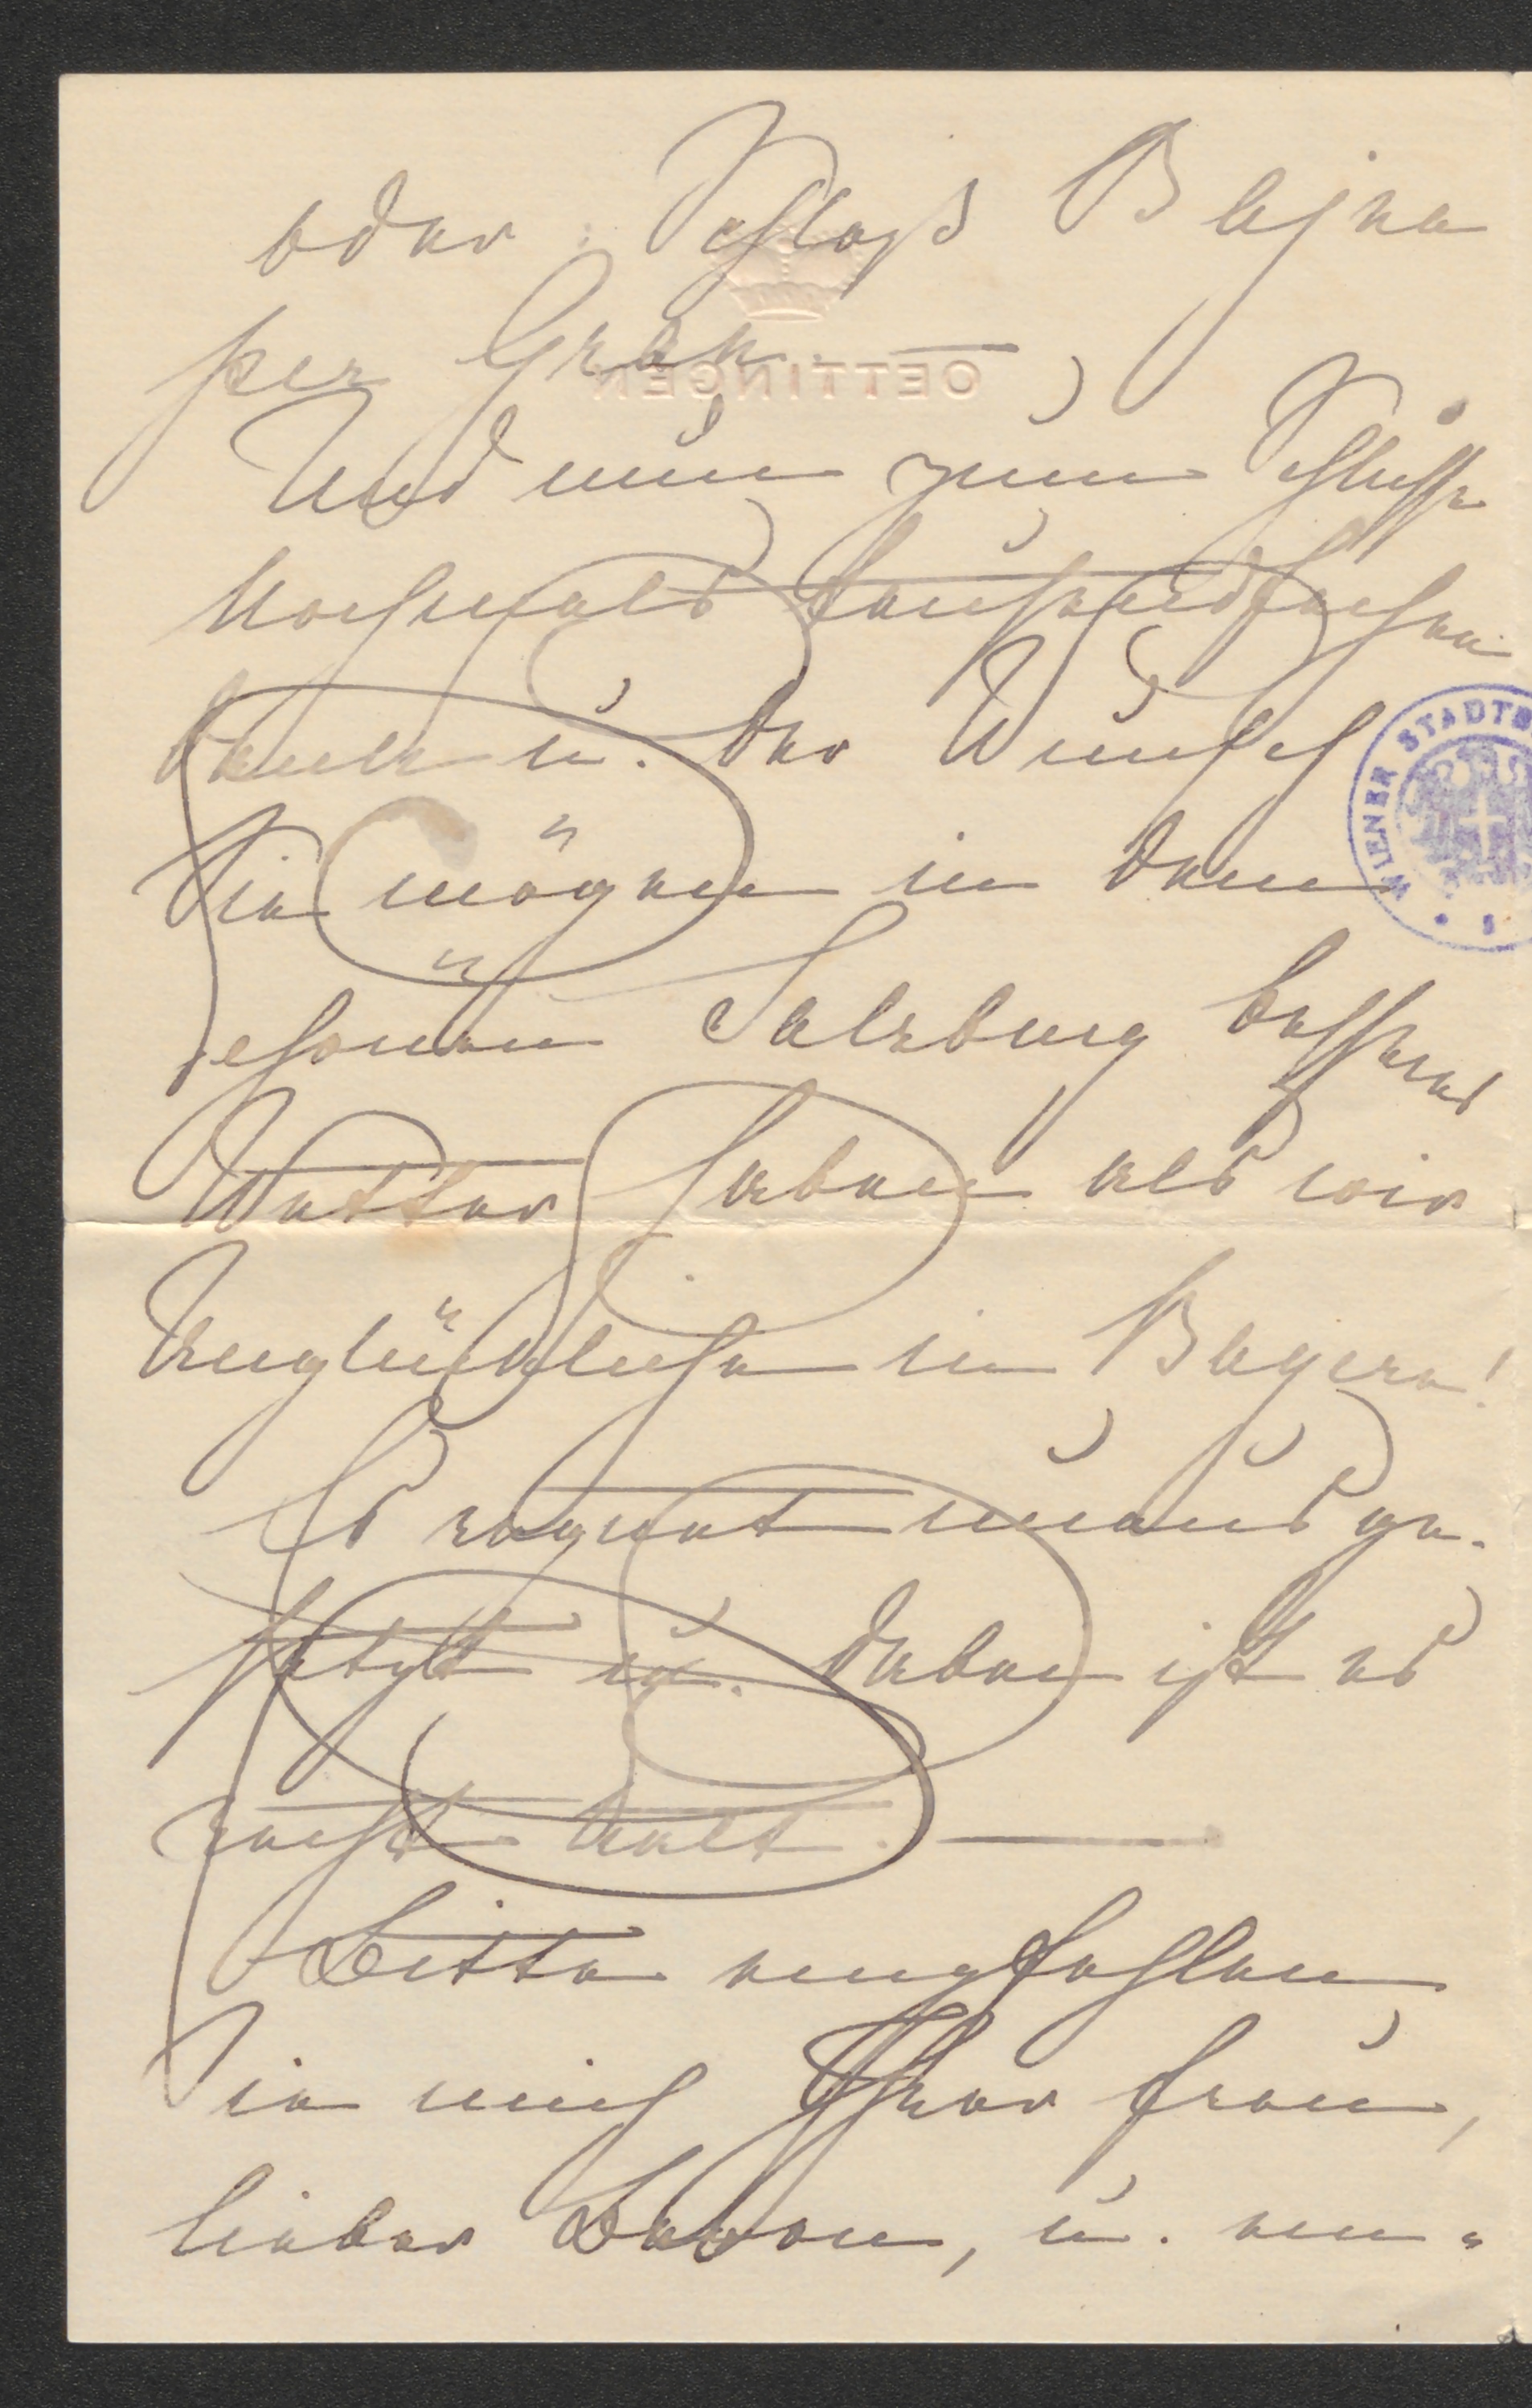 oder Schloß Bajna
per Gran. —
OETTINGEN
Und nun zum Schlusse
Nochmals tausendfachen
Dank u. der Wunsch
Sie mögen in dem
schönen Salzburg besseres
Wetter haben als wir
Unglückliche in Bayern!
Es regnet unausge-
setzt u. dabei ist es
recht kalt. —
Bitte empfehlen
Sie mich Ihrer Frau,
lieber Baron, u. em-
WIENER STADTB